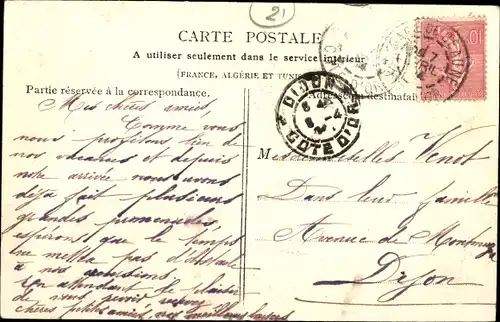 21
CARTE POSTALE
A utiliser seulement dans le service intérieur
(FRANCE, ALGÉRIE ET TUNISIE
Partie réservée à la correspondance.
Adresse du destinataire
DIJON
COTE D'OR
10
Mes chères amies,
Comme vous
nous profitons bien de
nos vacances et depuis
notre arrivée nous avons
déjà fait plusieurs
grandes promenades,
espérons que le temps
ne mettra pas d'obstacle
à nos excursions
En attendant le plaisir
de vous revoir recevez
chères petites amies, nos meilleurs baisers
Mesdemoiselles Venot
Dans leur famille
Avenue de
Dijon